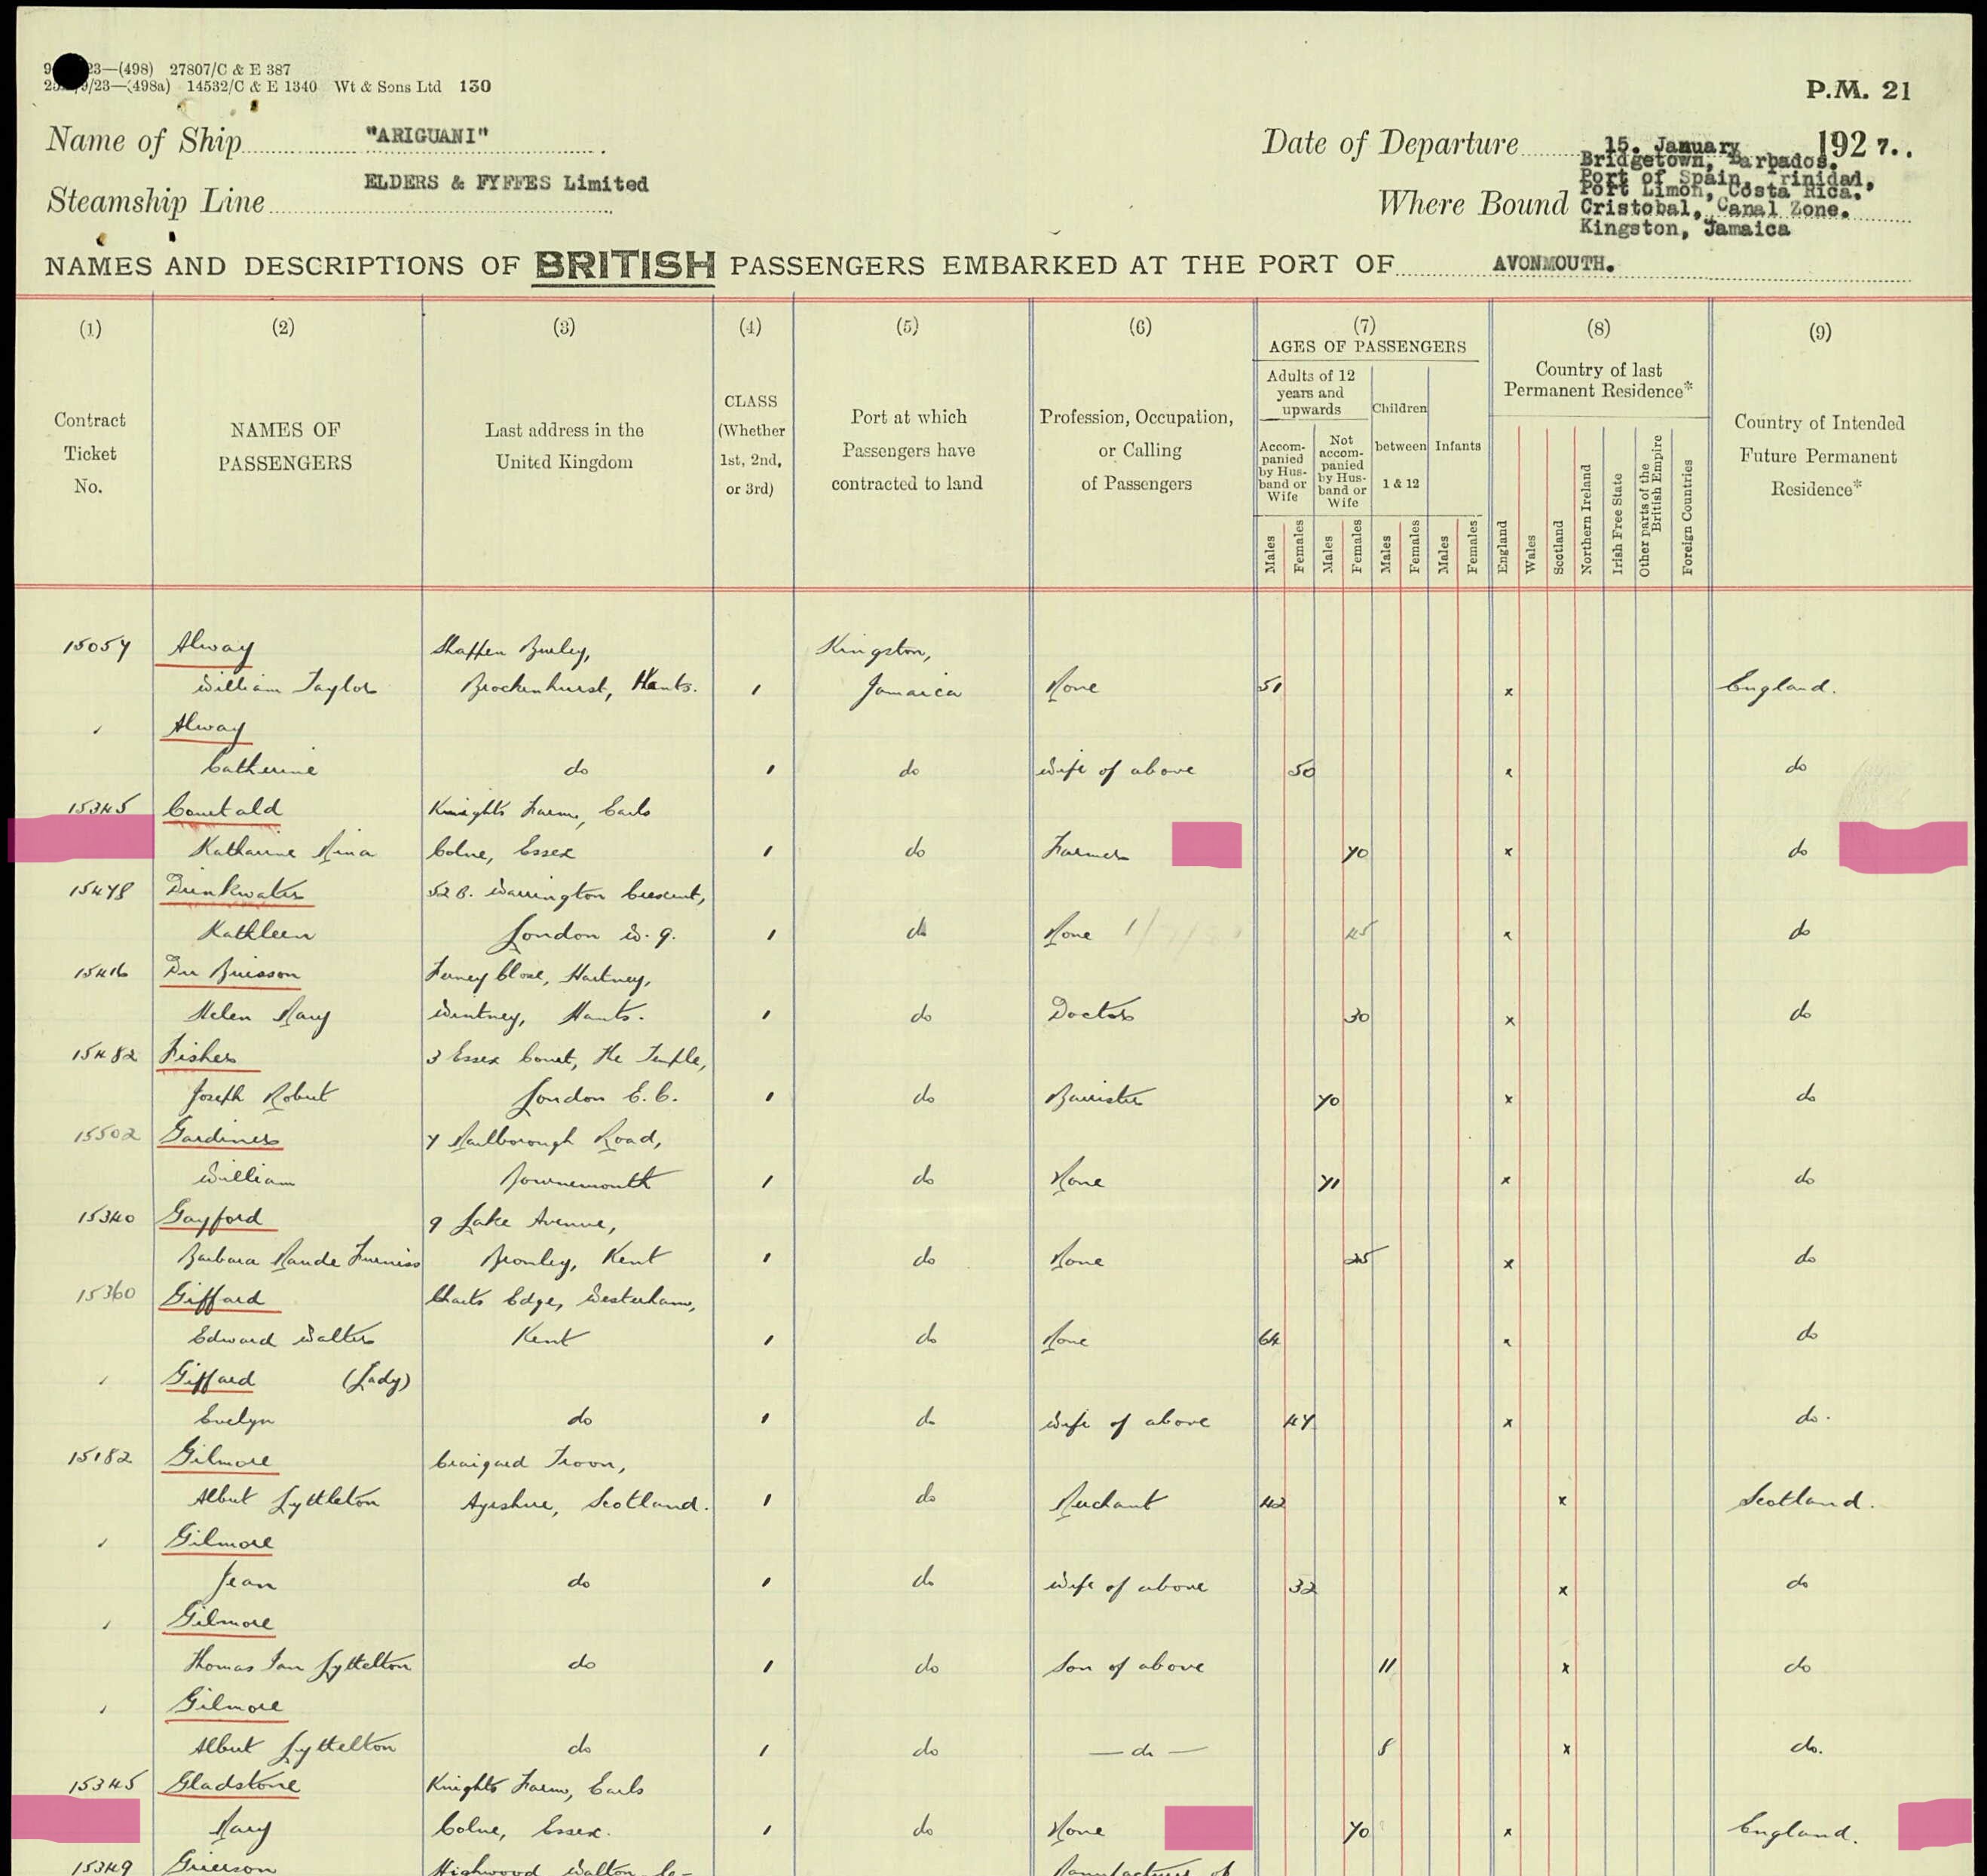 23—(498) 27807/C & E 387
/23—(498a) 14532/C & E 1340 Wt & Sons Ltd 130
P.M. 21
Name of Ship "ARIGUANI"
Date of Departure 15. January 1927.
Steamship Line ELDERS & FYFFES Limited
Where Bound Bridgetown, Barbados.
Port of Spain, Trinidad,
Port Limon, Costa Rica.
Cristobal, Canal Zone.
Kingston, Jamaica
NAMES AND DESCRIPTIONS OF BRITISH PASSENGERS EMBARKED AT THE PORT OF AVONMOUTH.
(1) (2) (3) (4) (5) (6) (7) (8) (9)
Contract Ticket No.
NAMES OF PASSENGERS
Last address in the United Kingdom
CLASS (Whether 1st, 2nd, or 3rd)
Port at which Passengers have contracted to land
Profession, Occupation, or Calling of Passengers
AGES OF PASSENGERS
Adults of 12 years and upwards
Accompanied by Husband or Wife
Not accompanied by Husband or Wife
Children between 1 & 12
Infants
Males Females Males Females Males Females Males Females
Country of last Permanent Residence*
England Wales Scotland Northern Ireland Irish Free State Other parts of the British Empire Foreign Countries
Country of Intended Future Permanent Residence*
15057 Alway Burley, Kingston,
William Taylor Brockenhurst, Hants. 1 Jamaica None 51 x England.
Alway
Catherine do 1 do wife of above 50 x do
15345 Courtald Knights Farm, Earls
Katharine Mina Colne, Essex 1 do Farmer 70 x do
15478 Drinkwater 52 B. Warrington Crescent,
Kathleen London W. 9. 1 do None 45 x do
15416 Du Buisson Ferney Close, Hartney,
Helen Mary Wintney, Hants. 1 do Doctor 30 x do
15482 Fisher 3 Essex Court, The Temple,
Joseph Robert London E.C. 1 do Barrister 70 x do
15502 Gardiner 7 Marlborough Road,
William Bournemouth 1 do None 71 x do
15340 Gayford 9 Lake Avenue,
Barbara Maude Furniss Bromley, Kent 1 do None 25 x do
15360 Giffard Charts Edge, Westerham,
Edward Walter Kent 1 do None 64 x do
Giffard (Lady)
Evelyn do 1 do wife of above 47 x do.
15182 Gilmore Craigard Troon,
Albert Lyttleton Ayrshire, Scotland. 1 do Merchant 42 x Scotland.
Gilmore
Jean do 1 do wife of above 32 x do
Gilmore
Thomas Ian Lyttelton do 1 do Son of above 11 x do
Gilmore
Albert Lyttelton do 1 do — do — 8 x do.
15345 Gladstone Knights Farm, Earls
Mary Colne, Essex. 1 do None 70 x England.
15349 Grierson Highwood, Walton-le- Manufacturer of